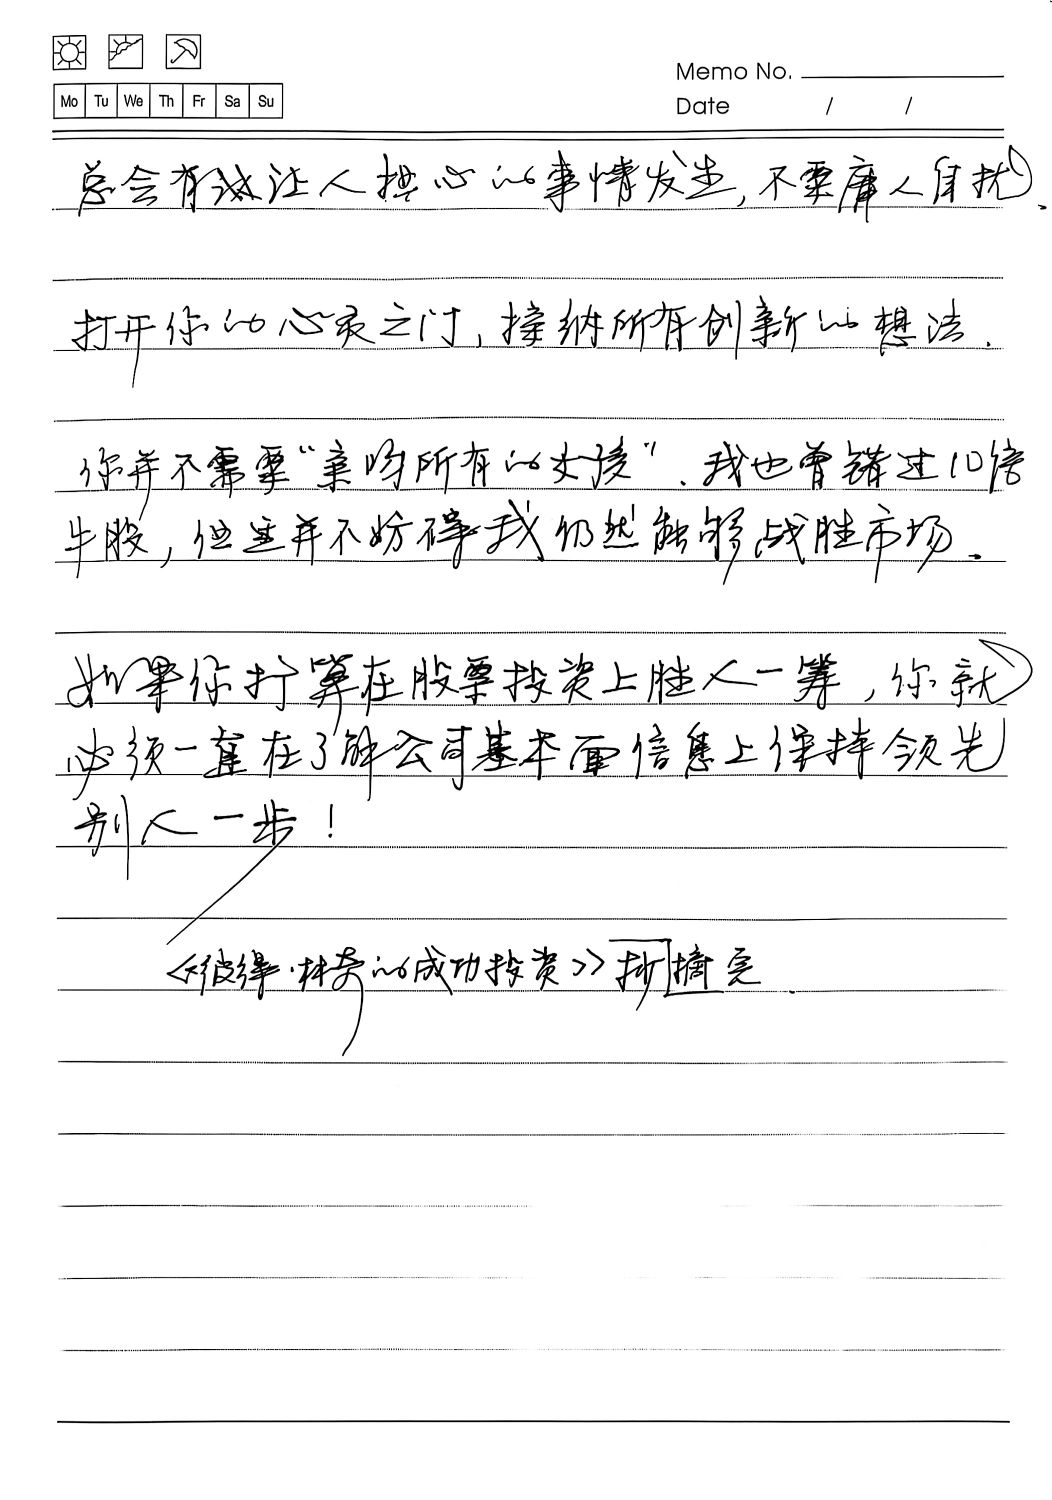 Memo No.
Mo Tu We Th Fr Sa Su
Date / /
总会有让人担心的事情发生,不要庸人自扰.
打开你的心灵之门,接纳所有创新的想法.
你并不需要“亲吻所有的女孩”.我也曾错过10倍
牛股,但这并不妨碍我仍然能够战胜市场.
如果你打算在股票投资上胜人一筹,你就
必须一直在了解公司基本面信息上保持领先
别人一步!
《彼得·林奇的成功投资》抄摘完.